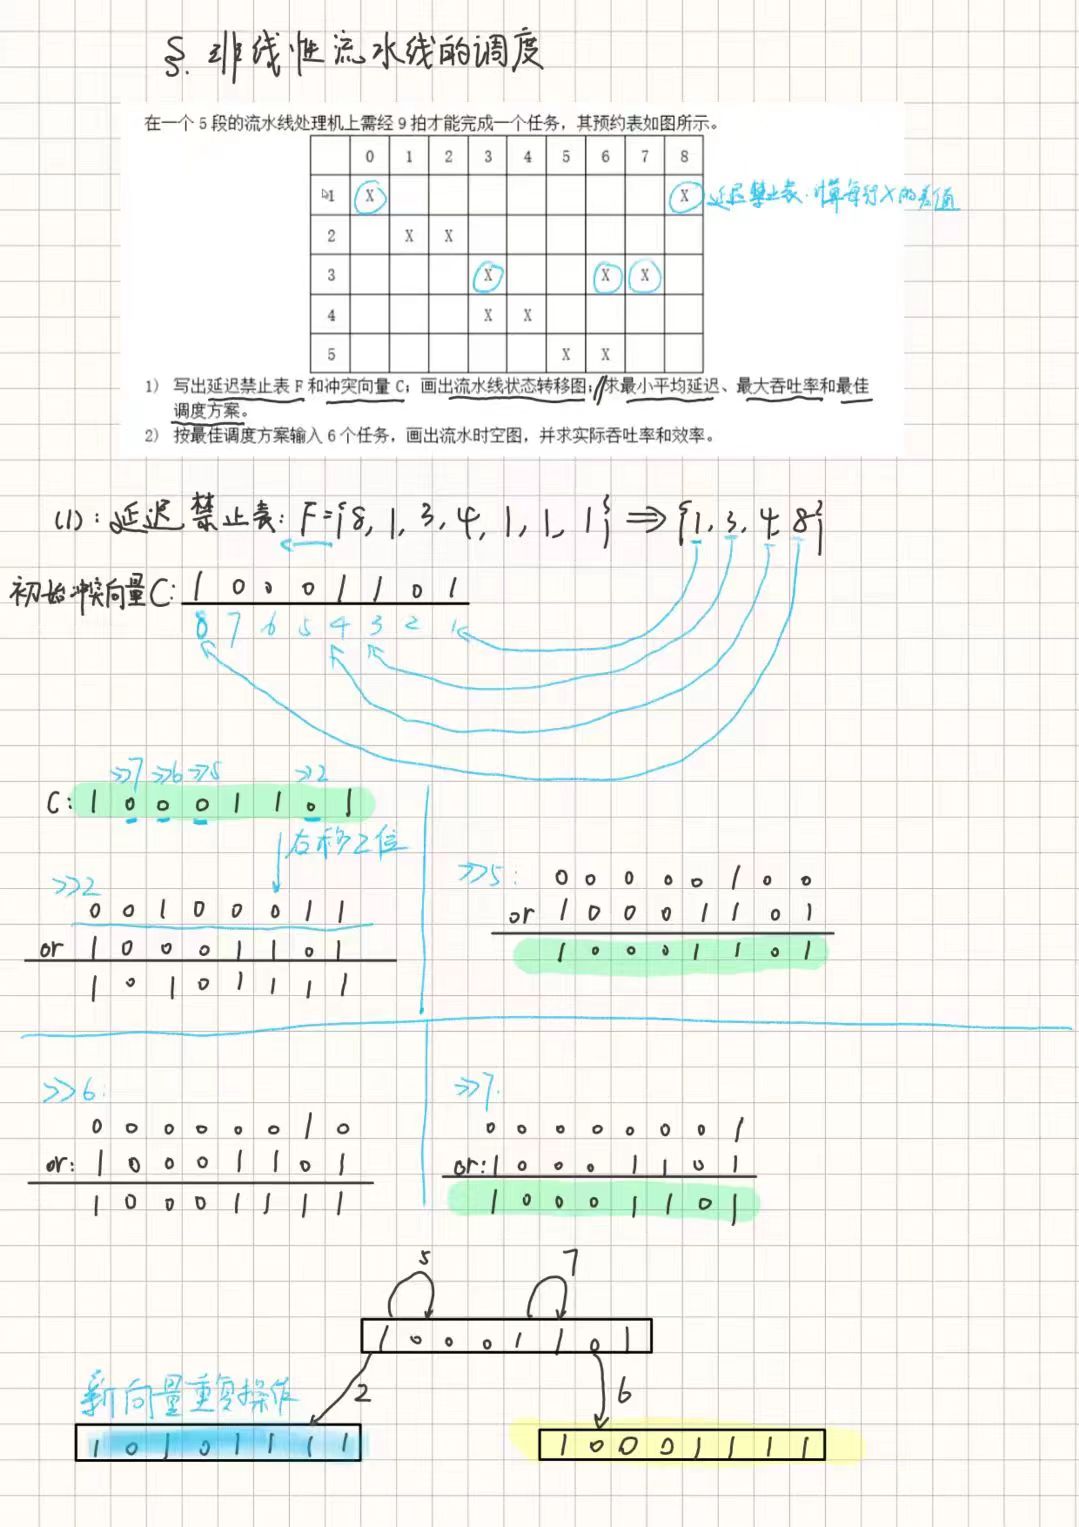 §. 非线性流水线的调度
在一个 5 段的流水线处理机上需经 9 拍才能完成一个任务，其预约表如图所示。
0 1 2 3 4 5 6 7 8
1 X X 延迟禁止表.计算每行X的差值
2 X X
3 X X X
4 X X
5 X X
1） 写出延迟禁止表 F 和冲突向量 C；画出流水线状态转移图；求最小平均延迟、最大吞吐率和最佳
调度方案。
2） 按最佳调度方案输入 6 个任务，画出流水时空图，并求实际吞吐率和效率。
(1)：延迟禁止表：F={8, 1, 3, 4, 1, 1, 1} ⇒ {1, 3, 4, 8}
初始冲突向量C: 1 0 0 0 1 1 0 1
8 7 6 5 4 3 2 1
>>7 >>6 >>5 >>2
C: 1 0 0 0 1 1 0 1
右移2位
>>2
0 0 1 0 0 0 1 1
or 1 0 0 0 1 1 0 1
1 0 1 0 1 1 1 1
>>5:
0 0 0 0 0 1 0 0
or 1 0 0 0 1 1 0 1
1 0 0 0 1 1 0 1
>>6:
0 0 0 0 0 0 1 0
or: 1 0 0 0 1 1 0 1
1 0 0 0 1 1 1 1
>>7.
0 0 0 0 0 0 0 1
or: 1 0 0 0 1 1 0 1
1 0 0 0 1 1 0 1
5 7
1 0 0 0 1 1 0 1
新向量重复操作 2 6
1 0 1 0 1 1 1 1
1 0 0 0 1 1 1 1